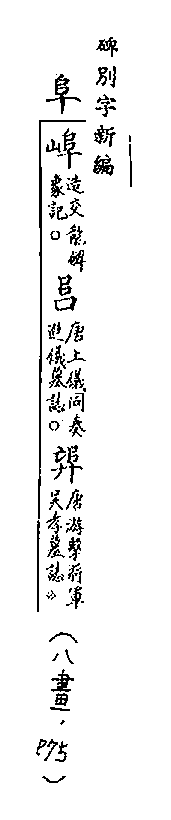 碑別字新編
阜
㟀 造交龍碑象記。㠯 唐上儀同秦進儀墓誌。𨸏 唐游擊將軍吴孝墓誌》
（八畫，P75）